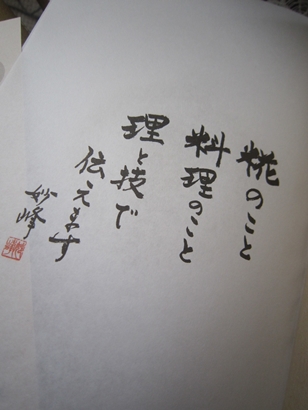 糀のこと
料理のこと
理と技で
伝えます
妙峰